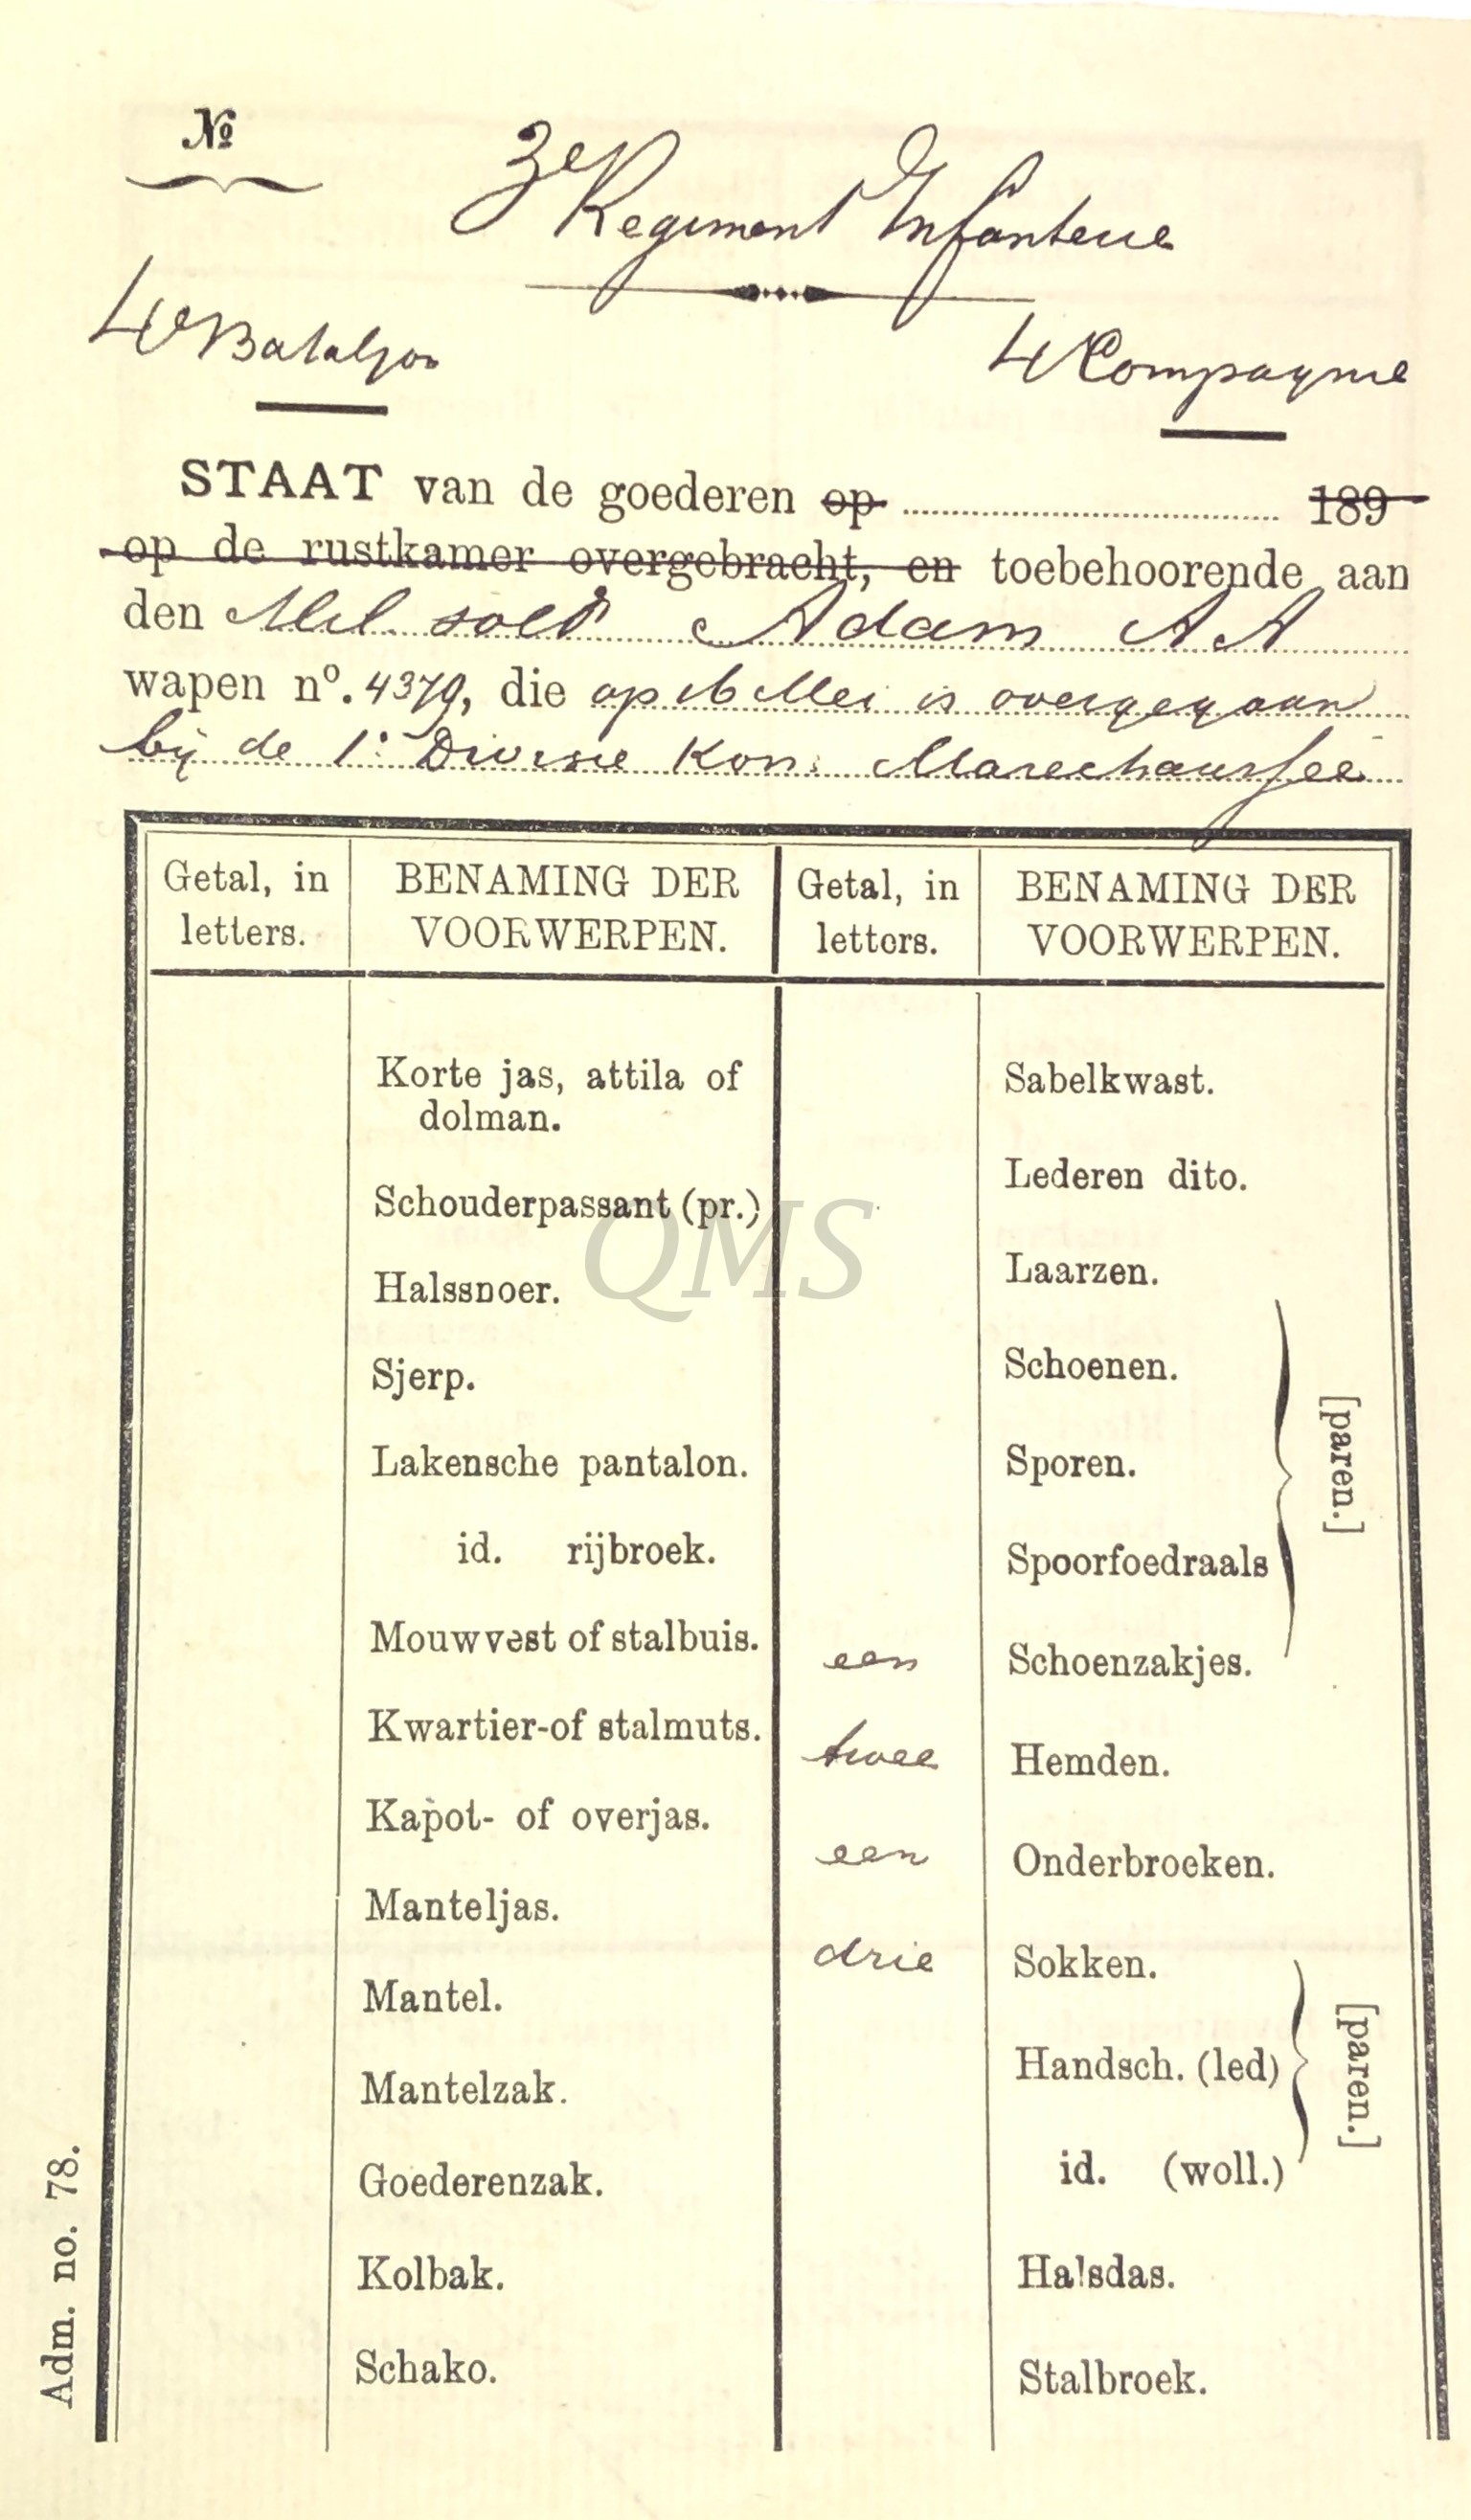 №
3e Regiment Infanterie
4e Bataljon
4e Compagnie
STAAT van de goederen op 189
op de rustkamer overgebracht, en toebehoorende aan
den Mil. sold. Adam A A
wapen nº. 4379, die op 16 Mei is overgegaan
bij de 1e Divisie Kon. Marechaussee
Getal, in letters.
BENAMING DER VOORWERPEN.
Getal, in letters.
BENAMING DER VOORWERPEN.
Korte jas, attila of
dolman.
Schouderpassant (pr.)
Halssnoer.
Sjerp.
Lakensche pantalon.
id. rijbroek.
Mouwvest of stalbuis.
Kwartier-of stalmuts.
Kapot- of overjas.
Manteljas.
Mantel.
Mantelzak.
Goederenzak.
Kolbak.
Schako.
Sabelkwast.
Lederen dito.
Laarzen.
Schoenen.
Sporen.
Spoorfoedraals
[paren.]
een Schoenzakjes.
twee Hemden.
een Onderbroeken.
drie Sokken.
Handsch. (led)
id. (woll.)
[paren.]
Halsdas.
Stalbroek.
Adm. no. 78.
QMS